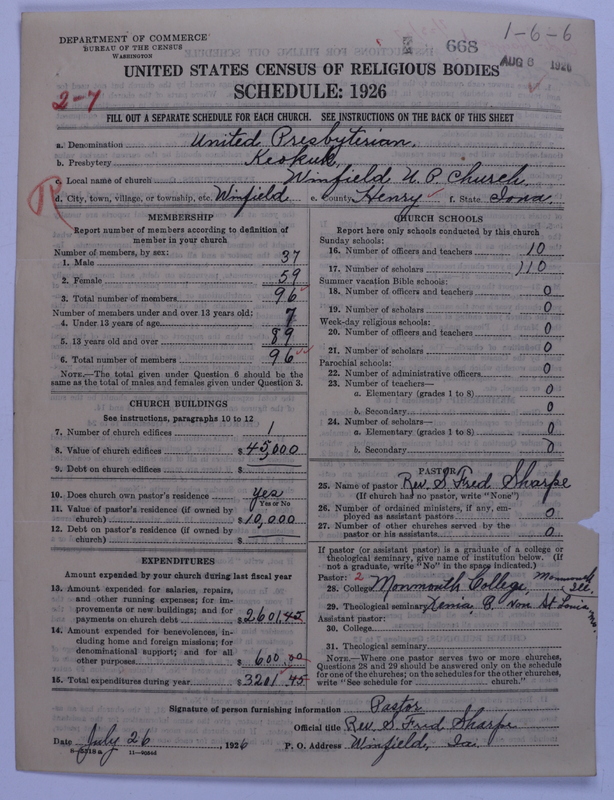 1-6-6
DEPARTMENT OF COMMERCE
BUREAU OF THE CENSUS
WASHINGTON
668
AUG 6 1926
UNITED STATES CENSUS OF RELIGIOUS BODIES
SCHEDULE: 1926
2-7
FILL OUT A SEPARATE SCHEDULE FOR EACH CHURCH. SEE INSTRUCTIONS ON THE BACK OF THIS SHEET
a. Denomination United Presbyterian.
b. Presbytery Keokuk,
c. Local name of church Winfield U. P. Church,
d. City, town, village, or township, etc. Winfield e. County Henry f. State Iowa.
MEMBERSHIP
Report number of members according to definition of member in your church
Number of members, by sex:
1. Male 37
2. Female 59
3. Total number of members 96
Number of members under and over 13 years old:
4. Under 13 years of age 7
5. 13 years old and over 89
6. Total number of members 96
NOTE.—The total given under Question 6 should be the same as the total of males and females given under Question 3.
CHURCH BUILDINGS
See instructions, paragraphs 10 to 12
7. Number of church edifices 1
8. Value of church edifices $45,000
9. Debt on church edifices $
10. Does church own pastor's residence yes
Yes or No
11. Value of pastor's residence (if owned by church) $10,000
12. Debt on pastor's residence (if owned by church) $
EXPENDITURES
Amount expended by your church during last fiscal year
13. Amount expended for salaries, repairs, and other running expenses; for improvements or new buildings; and for payments on church debt $2601.45
14. Amount expended for benevolences, including home and foreign missions; for denominational support; and for all other purposes $600.00
15. Total expenditures during year $3201.45
CHURCH SCHOOLS
Report here only schools conducted by this church
Sunday schools:
16. Number of officers and teachers 10
17. Number of scholars 110
Summer vacation Bible schools:
18. Number of officers and teachers 0
19. Number of scholars 0
Week-day religious schools:
20. Number of officers and teachers 0
21. Number of scholars 0
Parochial schools:
22. Number of administrative officers 0
23. Number of teachers—
a. Elementary (grades 1 to 8) 0
b. Secondary 0
24. Number of scholars—
a. Elementary (grades 1 to 8) 0
b. Secondary 0
PASTOR
25. Name of pastor Rev. S. Fred Sharpe
(If church has no pastor, write "None")
26. Number of ordained ministers, if any, employed as assistant pastors 0
27. Number of other churches served by the pastor or his assistants 0
If pastor (or assistant pastor) is a graduate of a college or theological seminary, give name of institution below. (If not a graduate, write "No" in the space indicated.)
Pastor: 2
28. College Monmouth College, Monmouth Ill.
29. Theological seminary St Louis Mo.
Assistant pastor:
30. College
31. Theological seminary
NOTE.—Where one pastor serves two or more churches, Questions 28 and 29 should be answered only on the schedule for one of the churches; on the schedules for the other churches, write "See schedule for church."
Signature of person furnishing information Pastor
Official title Rev. S. Fred Sharpe
Date July 26, 1926 P. O. Address Winfield, Ia.
8-5318a 11-90566